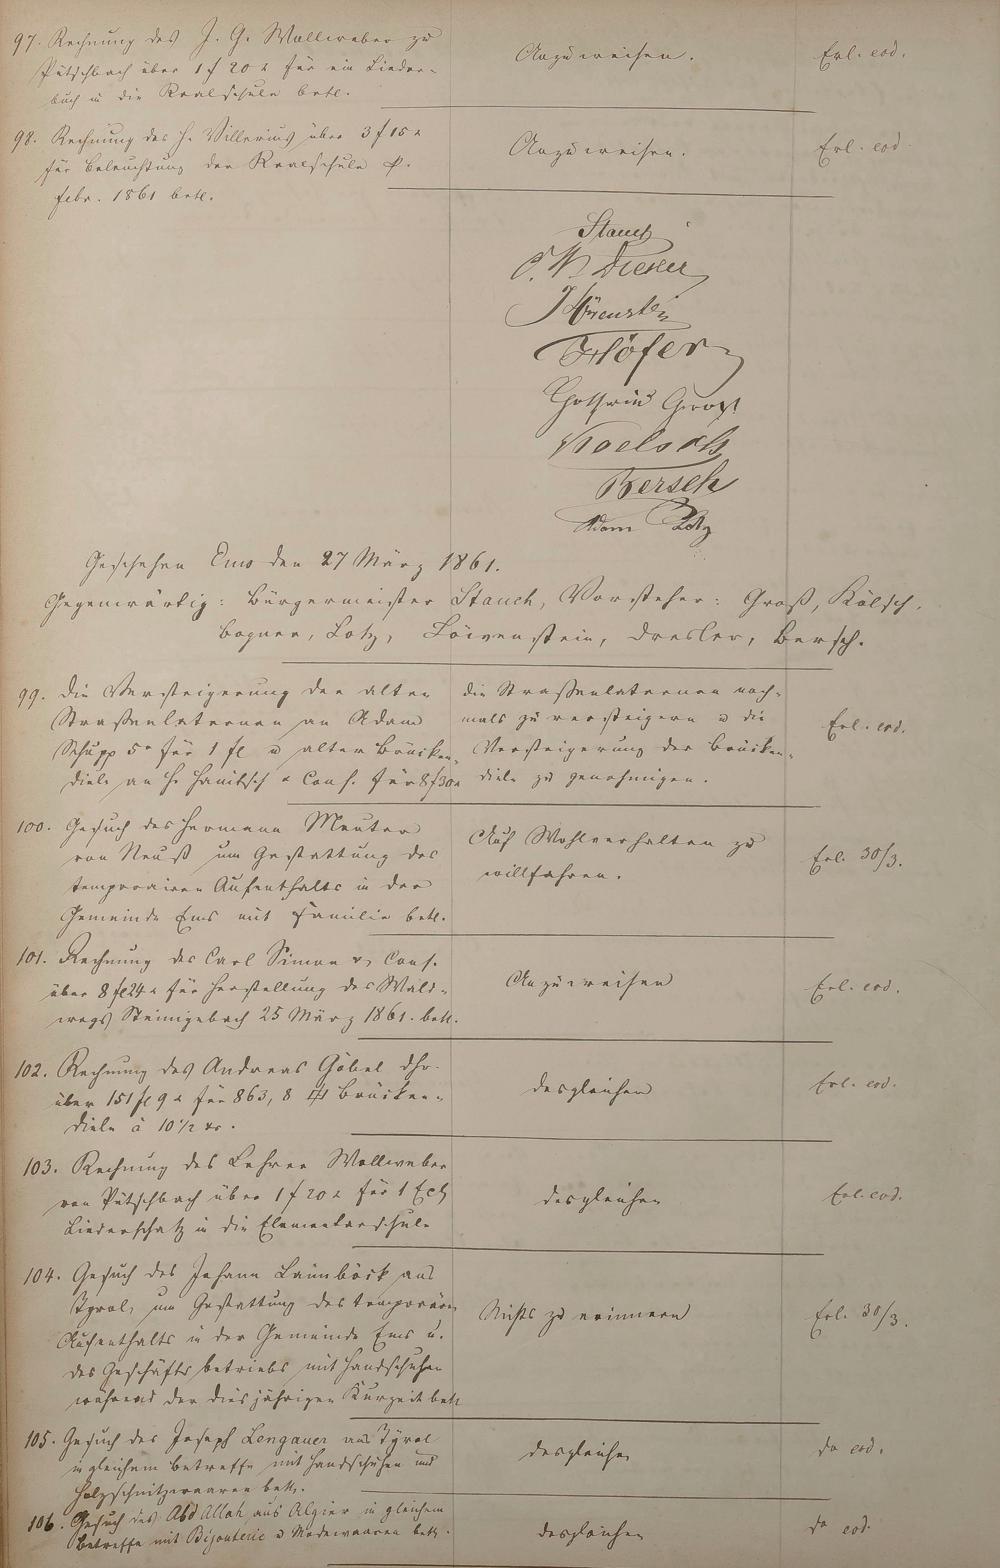 97. Rechnung des J. G. Wallweber zu
Pütschbach über 1 f 20 x für ein Lieder-
buch in die Realschule betr.
Anzuweisen.
Erl. eod.
98. Rechnung des H. Villerius über 3 f 15 x
für Beleuchtung der Realschule p.
Febr. 1861 betr.
Anzuweisen.
Erl. eod.
Stauch
Löwenstein
Gottfried Groß
Koelsch
Bersch
Adam Lotz
Geschehen Ems den 27 März 1861.
Gegenwärtig: Bürgermeister Stauch, Vorsteher: Groß, Kölsch,
Bogner, Lotz, Löwenstein, Dresler, Bersch.
99. Die Versteigerung der alten
Straßenlaternen an Adam
Schupp 5r für 1 fl u alter Brücken-
diele an H. Hanitsch & Cons. für 8 f 30 x
die Straßenlaternen noch-
mals zu versteigern u die
Versteigerung der Brücken-
diele zu genehmigen.
Erl. eod.
100. Gesuch des Hermann Meuter
von Neuß um Gestattung des
temporairen Aufenthalts in der
Gemeinde Ems mit Familie betr.
Auf Wohlverhalten zu
willfahren.
Erl. 30/3.
101. Rechnung des Carl Simon & Cons.
über 8 fl 24 x für Herstellung des Wald-
wegs Steinigebach 25 März 1861. betr.
Anzuweisen
Erl. eod.
102. Rechnung des Andreas Göbel dhr.
über 151 fl 9 x für 863,8 # Brücken-
diele à 10 1/2 xr.
desgleichen
Erl. eod.
103. Rechnung des Lehrer Wallweber
von Pütschbach über 1 f 20 x für 1 Expl
Liederschatz in die Elementarschule
desgleichen
Erl. eod.
104. Gesuch des Johann Laimböck aus
Tyrol, um Gestattung des temporären
Aufenthalts in der Gemeinde Ems u.
des Geschäftsbetriebs mit Handschuhen
während der diesjährigen Kurzeit betr
Nichts zu erinnern
Erl. 30/3.
105. Gesuch des Joseph Lengauer aus Tyrol
in gleichem Betreffe mit Handschuhen und
Holzschnitzwaaren betr.
desgleichen
do eod.
106. Gesuch des Abd Allah aus Algier in gleichem
Betreffe mit Bijouterie u Modewaaren betr.
desgleichen
do eod.